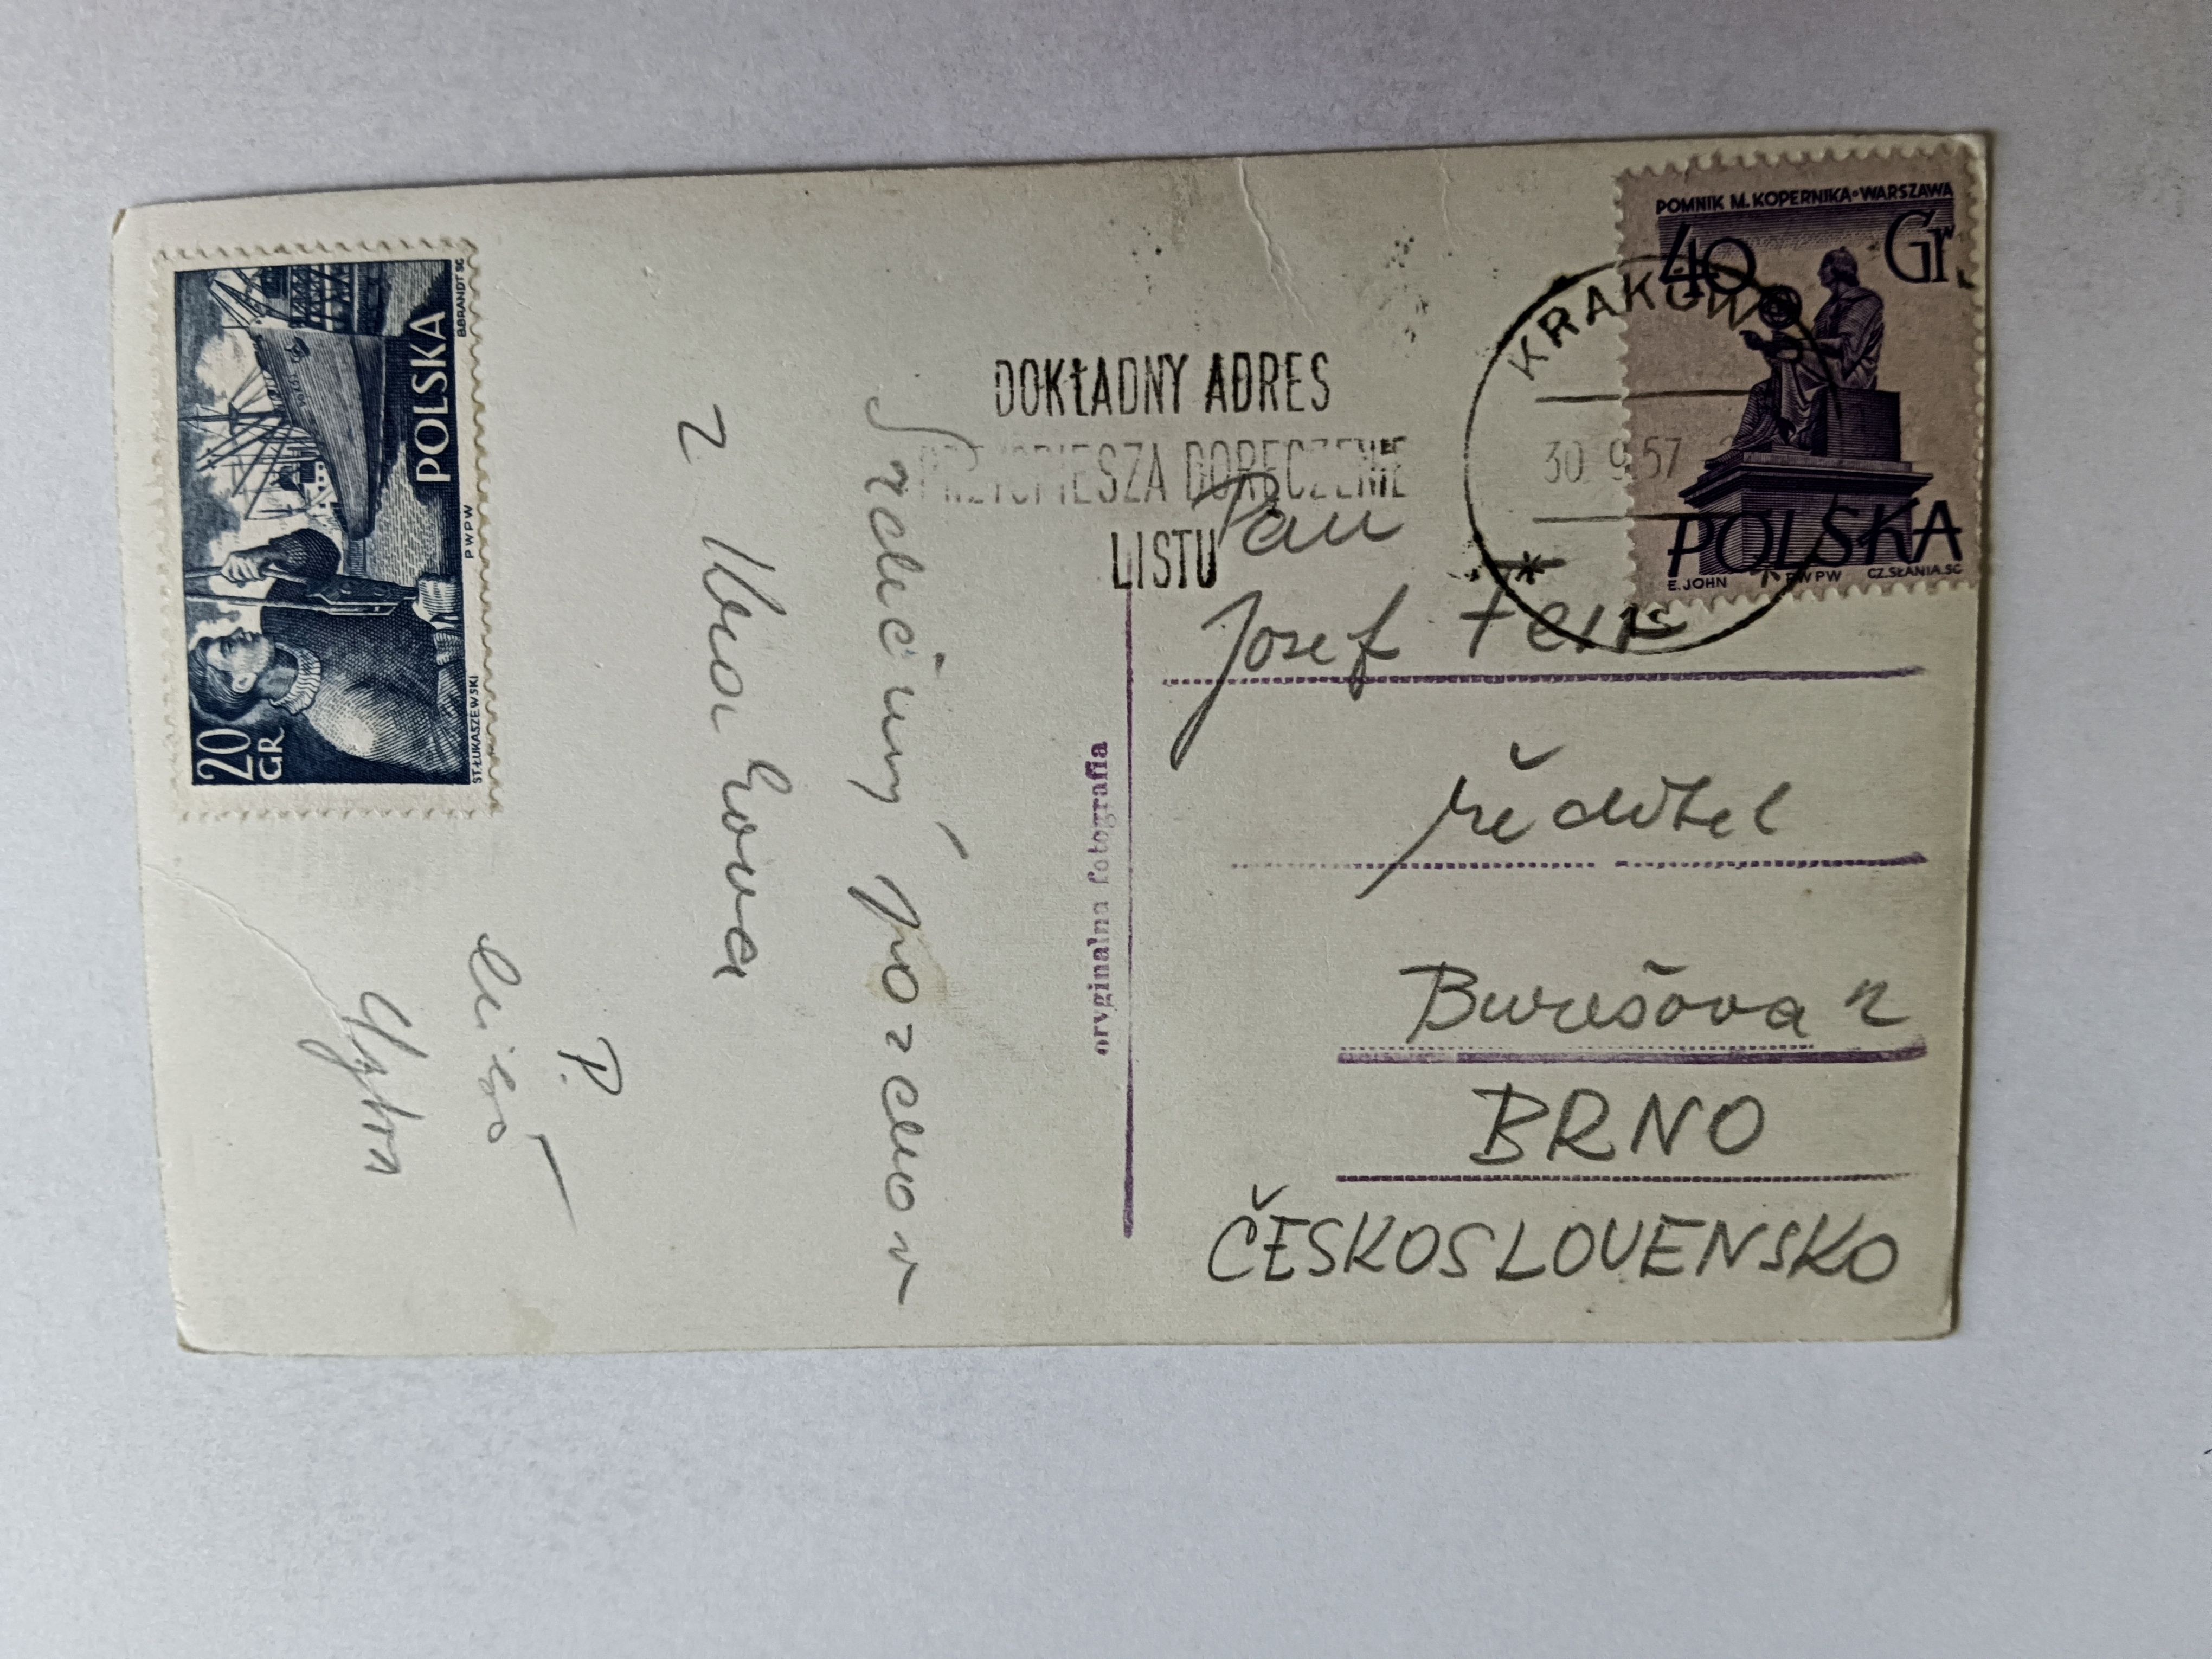 POMNIK M. KOPERNIKA • WARSZAWA
40 Gr.
POLSKA
E. JOHN PWPW CZ. SŁANIA. SC
KRAKÓW
30. 9. 57
DOKŁADNY ADRES
PRZYSPIESZA DORĘCZENIE
LISTU
Pan
Josef
ředitel
Burešova 2
BRNO
ČESKOSLOVENSKO
oryginalna fotografia
Srdečný pozdrav
z Krakova
P.
20
GR
POLSKA
ST. ŁUKASZEWSKI PWPW B. BRANDT SC